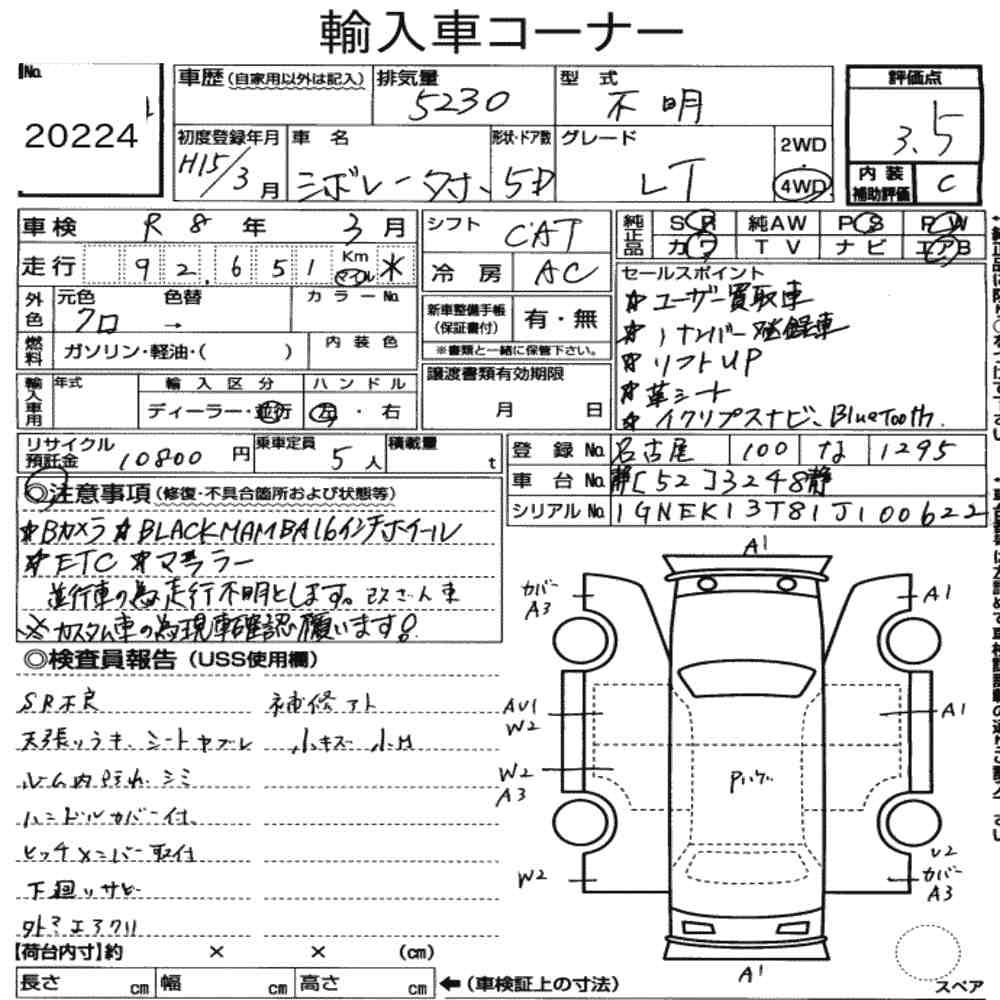 輸入車コーナー
No.
20224
車歴(自家用以外は記入)
排気量
5230
型式
不明
評価点
3.5
初度登録年月
H15/3月
車名
シボレータホ、
形状・ドア数
5D
グレード
LT
2WD
4WD
内装補助評価
C
車検 R8年 3月
シフト
CAT
純正品
SR 純AW PS PW
カワ TV ナビ エアB
走行 92,651 Km マイル *
冷房
AC
セールスポイント
☆ユーザー買取車
☆1ナンバー登録車
☆リフトUP
☆革シート
☆イクリプスナビ、BlueTooth.
外色
元色 色替
クロ →
カラーNo.
新車整備手帳
(保証書付)
有・無
※書類と一緒に保管下さい。
燃料
ガソリン・軽油・( )
内装色
輸入車用
年式
輸入区分
ディーラー・並行
ハンドル
左・右
譲渡書類有効期限
月 日
リサイクル預託金
10800円
乗車定員
5人
積載量
t
登録No.
名古屋 100 な 1295
車台No.
静[52]3248静
シリアルNo.
1GNEK13T81J100622
◎注意事項(修復・不具合箇所および状態等)
☆Bカメラ☆BLACKMAMBA16インチホイール
☆ETC ☆マフラー
並行車の為走行不明とします。
※カスタム車の為現車確認願います。
◎検査員報告(USS使用欄)
SR不良
補修アト
天張りウキ、シートヤブレ
小キズ 小凹
ルーム内汚れ、シミ
ハンドルカバー付、
ヒッチメンバー取付
下廻りサビ
A1
カバー
A3
A1
AU1
W2
A1
W2
A3
W2
U2
カバー
A3
A1
【荷台内寸】約 × × (cm)
長さ cm 幅 cm 高さ cm ←(車検証上の寸法)
スペア